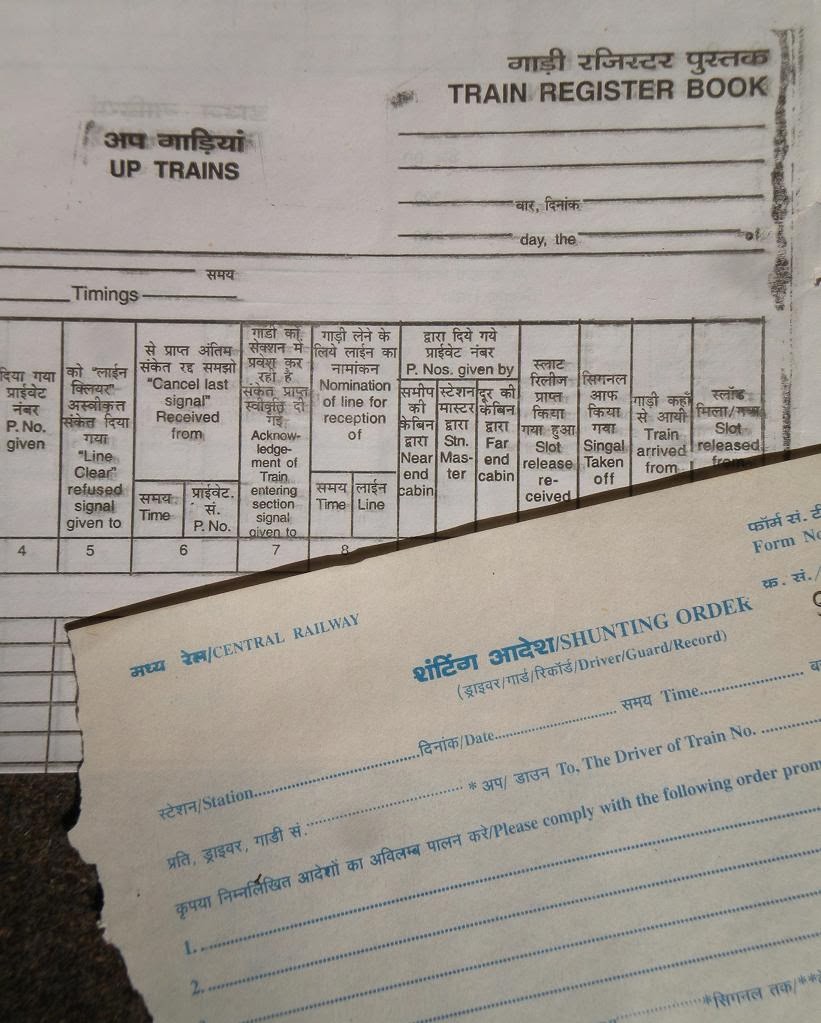 गाड़ी रजिस्टर पुस्तक
TRAIN REGISTER BOOK
अप गाड़ियां
UP TRAINS
वार, दिनांक
day, the of
समय
Timings
दिया गया
प्राईवेट
नंबर
P. No.
given
को "लाईन
क्लियर"
अस्वीकृत
संकेत दिया
गया
"Line
Clear"
refused
signal
given to
से प्राप्त अंतिम
संकेत रद्द समझो
"Cancel last
signal"
Received
from
समय
Time
प्राईवेट.
सं.
P. No.
गाडी को
सेक्शन में
प्रवेश कर
रही है
संकेत प्राप्त
स्वीकृति दी
गई
Acknow-
ledge-
ment of
Train
entering
section
signal
given to
गाड़ी लेने के
लिये लाईन का
नामांकन
Nomination
of line for
reception
of
समय
Time
लाईन
Line
द्वारा दिये गये
प्राईवेट नंबर
P. Nos. given by
समीप
की
केबिन
द्वारा
Near
end
cabin
स्टेशन
मास्टर
द्वारा
Stn.
Mas-
ter
दूर की
केबिन
द्वारा
Far
end
cabin
स्लाट
रिलीज
प्राप्त
किया
गया हुआ
Slot
release
re-
ceived
सिगनल
आफ
किया
गया
Singal
Taken
off
गाड़ी कहाँ
से आयी
Train
arrived
from
स्लॉट
मिला/गया
Slot
released
from
4 5 6 7 8
फॉर्म सं. टी
Form No
क्र. सं./
मध्य रेल/CENTRAL RAILWAY
शंटिंग आदेश/SHUNTING ORDER
(ड्राइवर/गार्ड/रिकॉर्ड/Driver/Guard/Record)
स्टेशन/Station..........दिनांक/Date..........समय Time..........
प्रति, ड्राइवर, गाडी सं...........* अप/ डाउन To, The Driver of Train No. ..........
कृपया निम्नलिखित आदेशों का अविलम्ब पालन करे/Please comply with the following order prom
1. ..........
2. ..........
..........*सिगनल तक/**